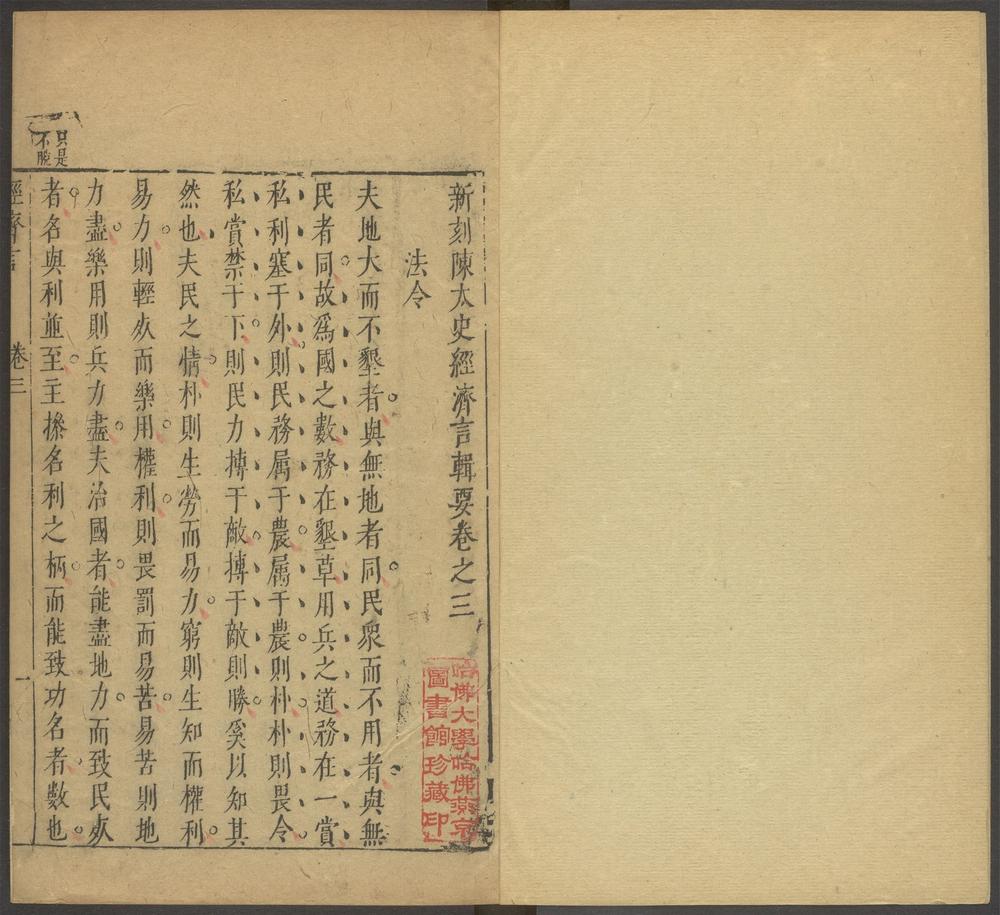 新刻陳太史經濟言輯要卷之三
法令
夫地大而不墾者與無地者同民衆而不用者與無
民者同故爲國之數務在墾草用兵之道務在一賞
私利塞于外則民務属于農属于農則朴朴則畏令
私賞禁于下則民力摶于敵摶于敵則勝奚以知其
然也夫民之情朴則生勞而易力窮則生知而權利
易力則輕㱐而樂用權利則畏罰而易苦易苦則地
力盡樂用則兵力盡夫治國者能盡地力而致民㱐
者名與利並至主操名利之柄而能致功名者數也
只是
不脫
經濟言
卷三
一
哈佛大學哈佛燕京
圖書館珍藏印